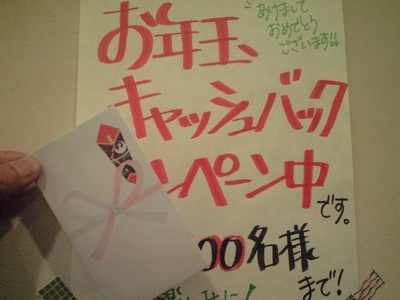 あけまして
おめでとう
ございます!!
お年玉、
キャッシュバック
ンペーン中
です。
00名様
まで!